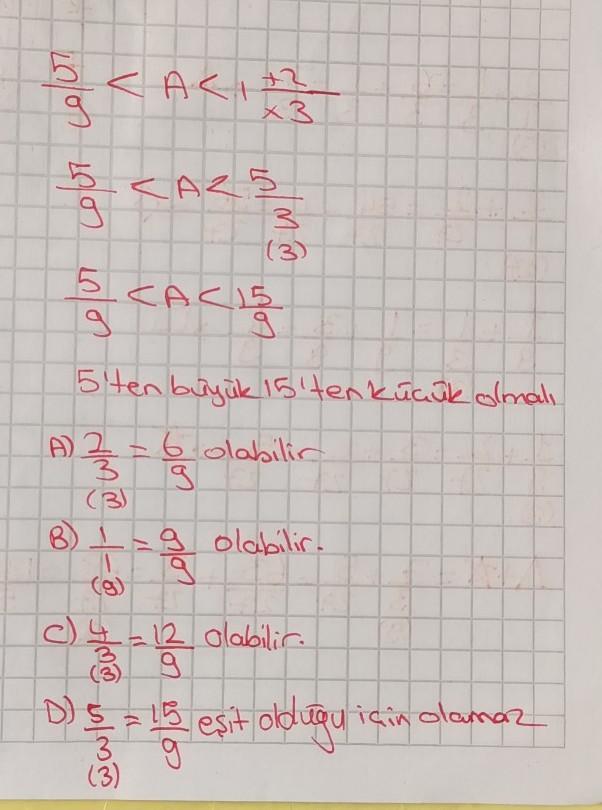 5/9 < A < 1 +2/×3
5/9 < A < 5/3 (3)
5/9 < A < 15/9
5'ten büyük 15'ten küçük olmalı
A) 2/3 (3) = 6/9 olabilir
B) 1/1 (9) = 9/9 olabilir.
C) 4/3 (3) = 12/9 olabilir.
D) 5/3 (3) = 15/9 eşit olduğu için olamaz